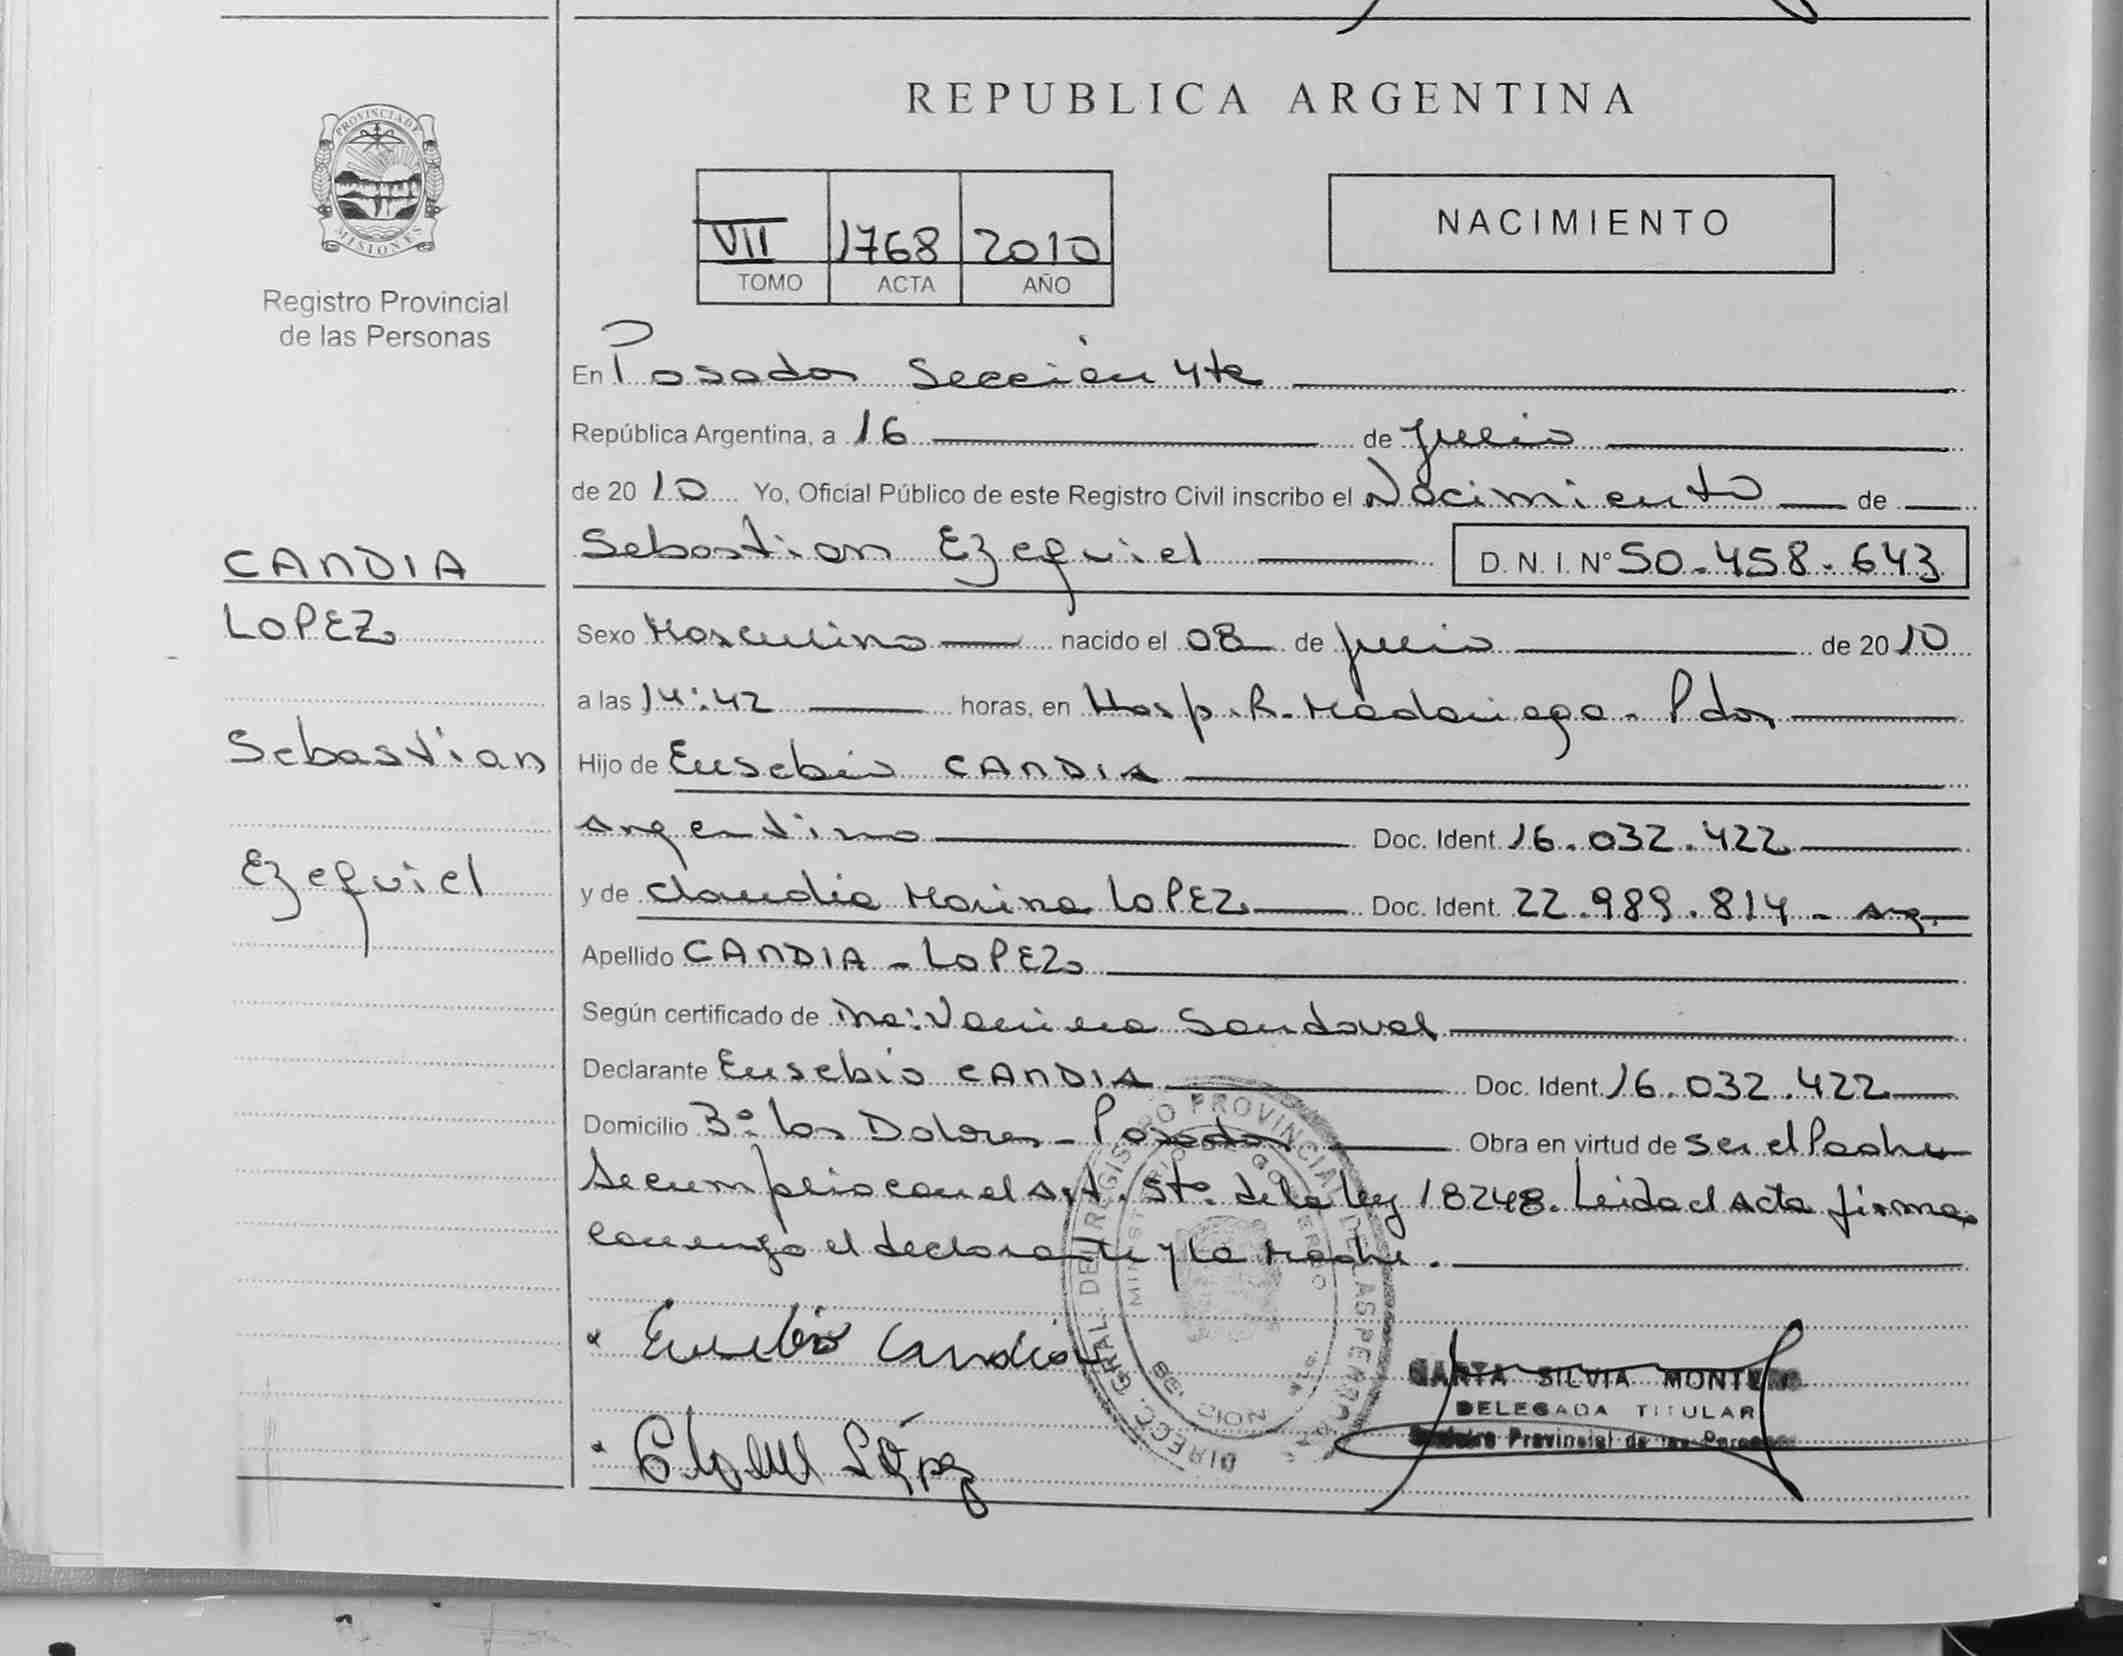 REPUBLICA ARGENTINA
PROVINCIA DE
MISIONES
Registro Provincial
de las Personas
VII 1768 2010
TOMO ACTA AÑO
NACIMIENTO
En Posadas Sección 4ta
República Argentina, a 16 de Julio
de 2010 Yo, Oficial Público de este Registro Civil inscribo el Nacimiento de
Sebastian Ezequiel D. N. I. Nº 50.458.643
CANDIA
LOPEZ
Sebastian
Ezequiel
Sexo Masculino nacido el 08 de Julio de 2010
a las 14:42 horas, en Hosp. R. Madariaga - Pdas
Hijo de Eusebio CANDIA
Argentino Doc. Ident. 16.032.422
y de Claudia Marina LOPEZ Doc. Ident. 22.989.814 - Arg.
Apellido CANDIA - LOPEZ
Según certificado de Sandoval
Declarante Eusebio CANDIA Doc. Ident. 16.032.422
Domicilio Bº Los Dolores - Posadas Obra en virtud de ser el Padre
Se cumplio con el Art. 5to. de la ley 18248. Leida el Acta firma
conmigo el declarante y la Madre.
Eusebio Candia
López
DIRECC. GRAL. DEL REGISTRO PROVINCIAL DE LAS PERSONAS
MINISTERIO DE GOBIERNO
MARTA SILVIA MONTERO
DELEGADA TITULAR
Registro Provincial de las Personas